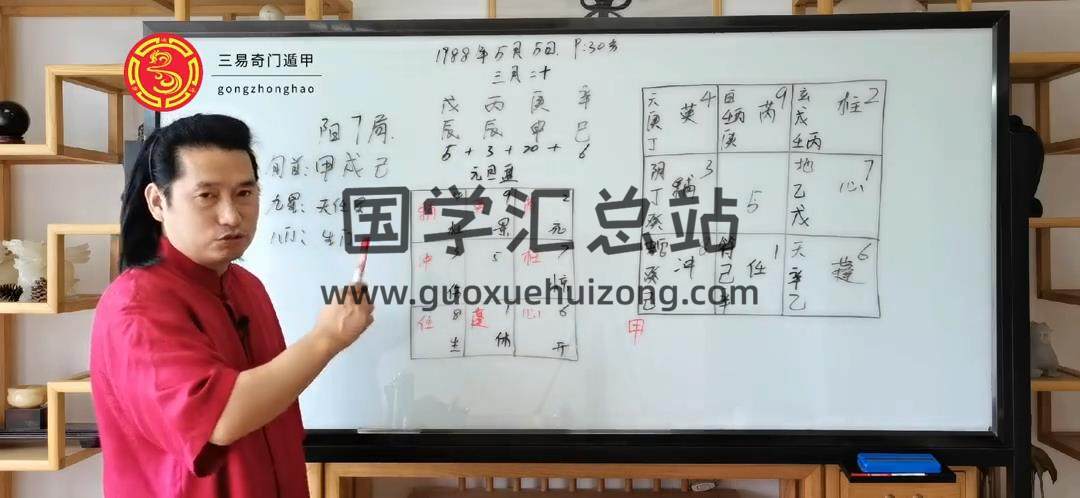 三易奇门遁甲
gongzhonghao
1988年5月5日 9:30分
三月二十
戊 丙 庚 辛
辰 辰 申 巳
5 + 3 + 20 + 6
阳7局
旬首：甲戌己
九星：天任
八门：生门
元旦盘
2
冲 5 柱 7
任 8 蓬 1 心 6
生 休 开
天 英 4
庚
丁
芮 9
丙
庚
玄 柱 2
戊
壬丙
阴 辅 3
丁
癸
5
地 心 7
乙
戊
冲
癸
己
符 任 1
己
辛
天 蓬 6
辛
乙
甲
国学汇总站
www.guoxuehuizong.com